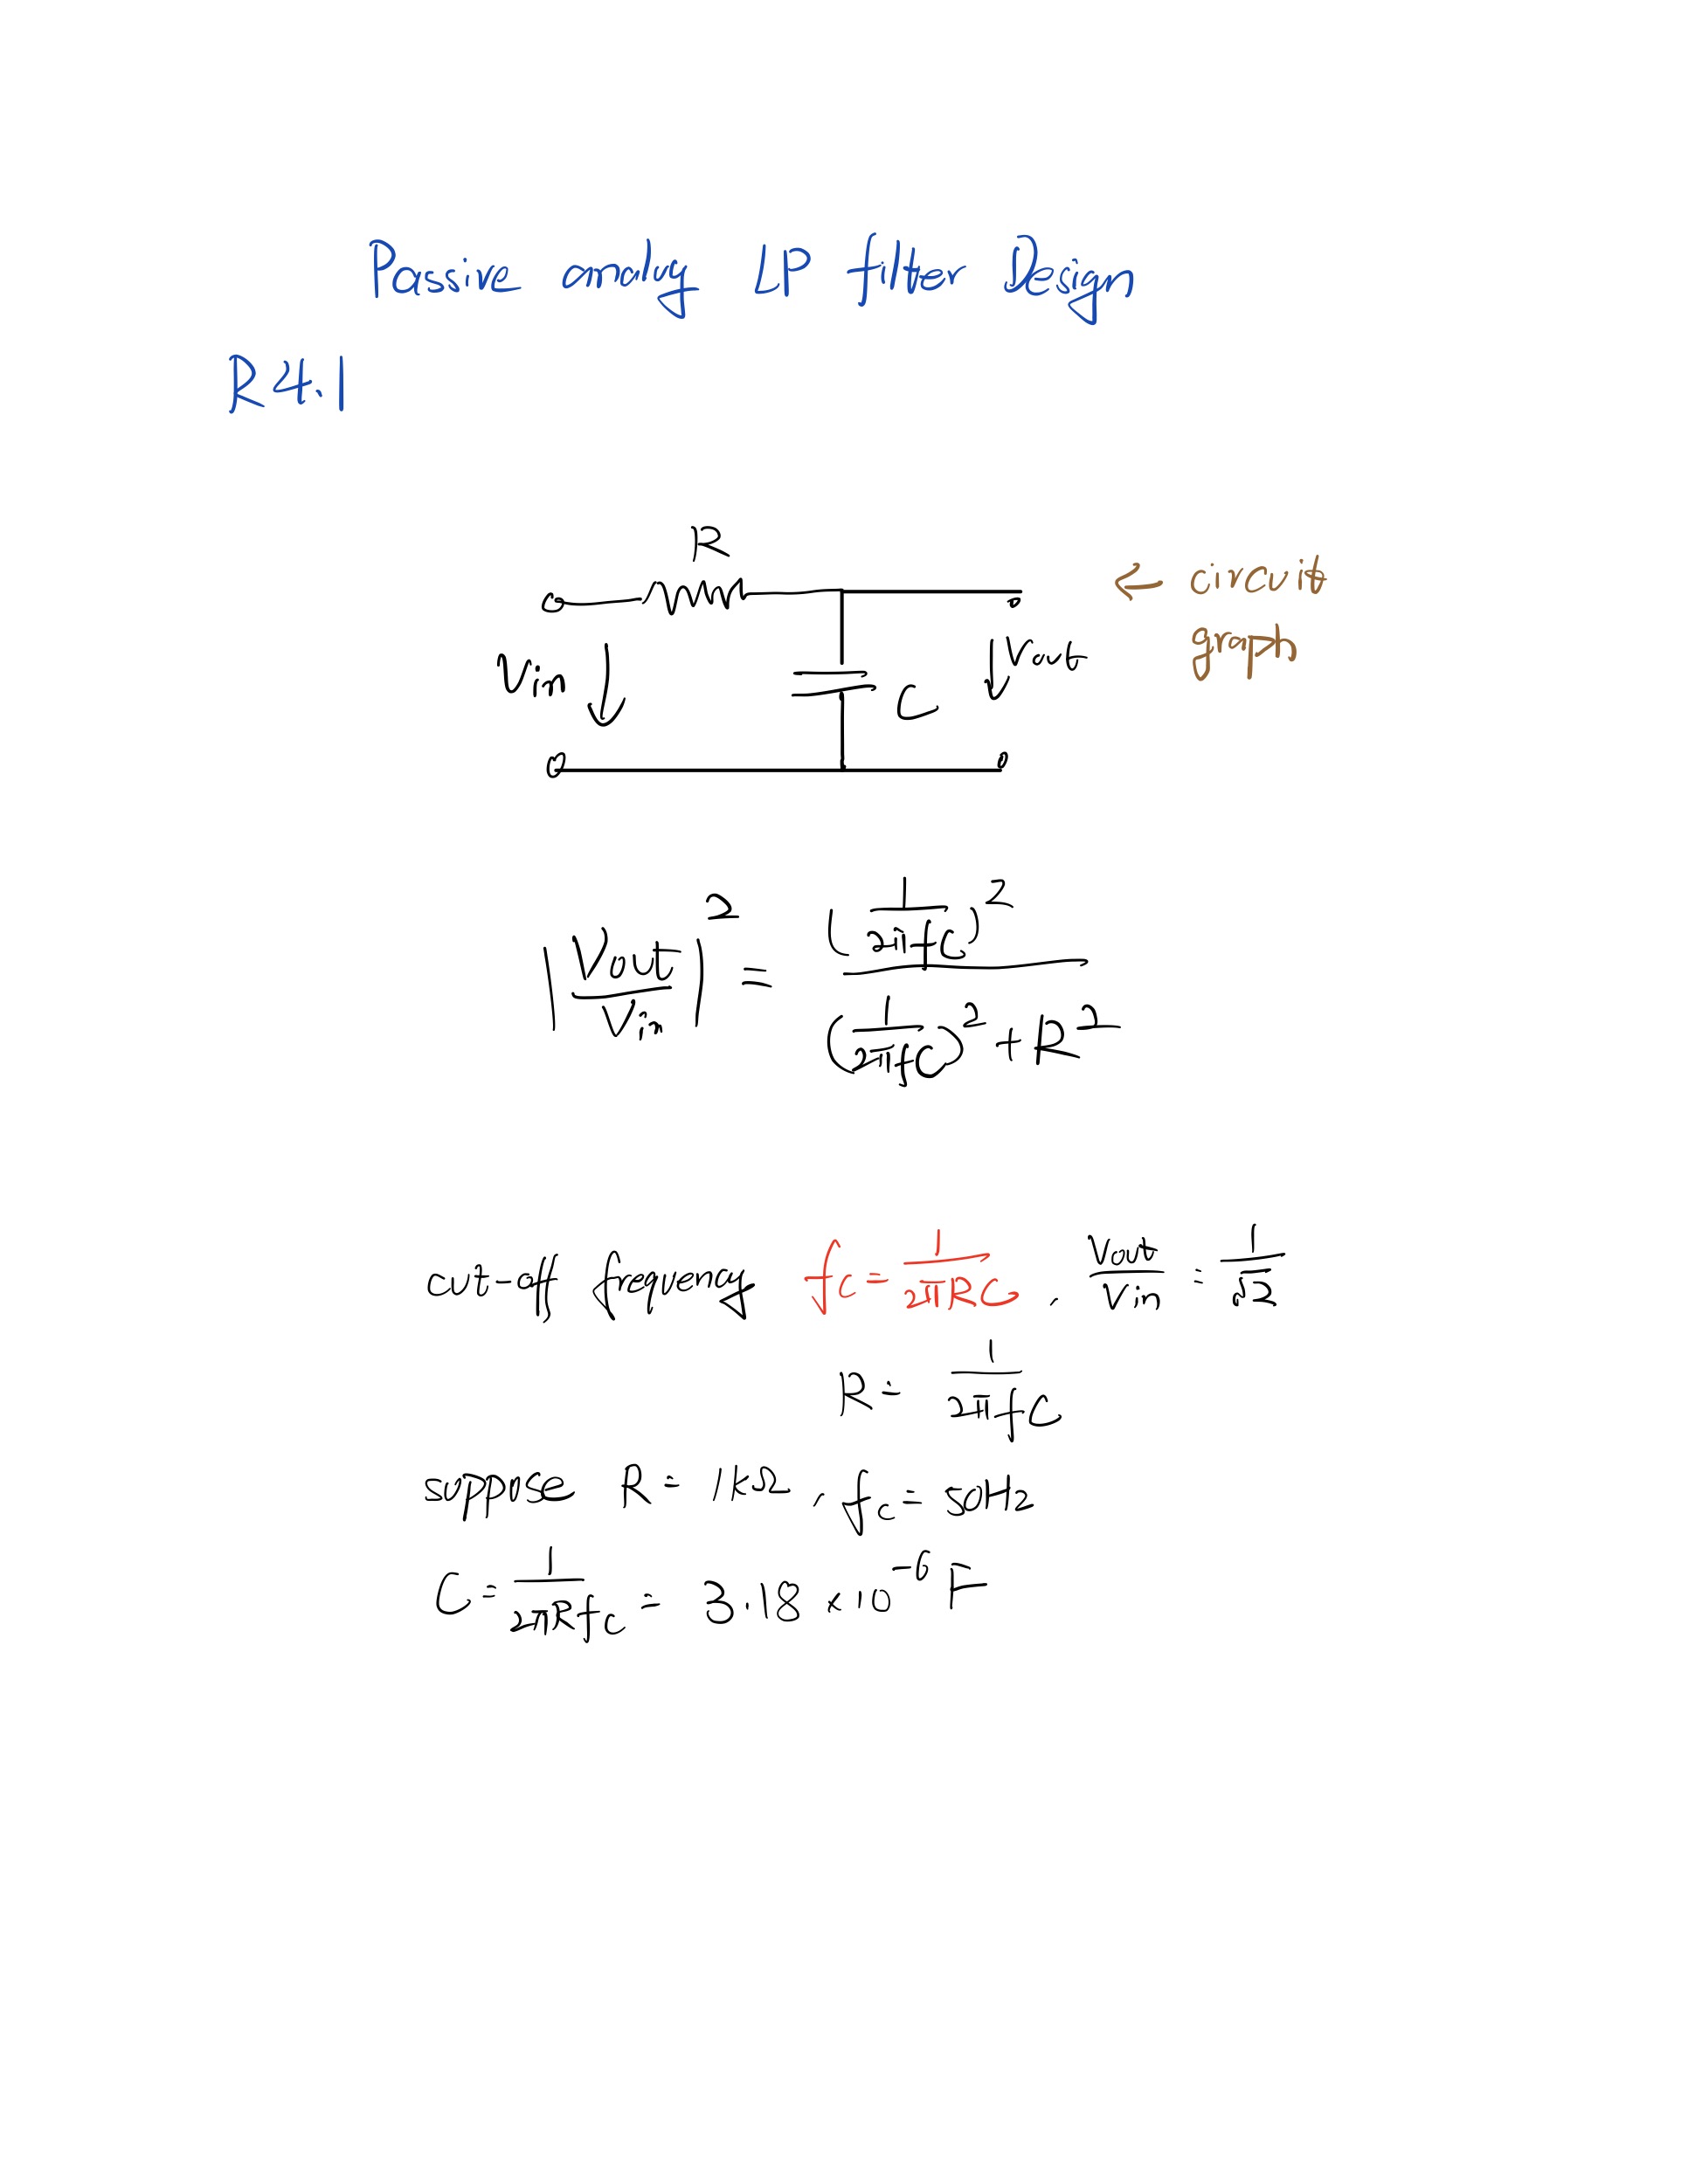 Passive analog LP filter Design
R4.1
R
← circuit
graph
Vin ↓
↓ Vout
C
|Vout/Vin|² = (1/(2πfC))² / ((1/(2πfC))² + R²)
cut-off frequency fc = 1/(2πRC) , Vout/Vin = 1/√2
R = 1/(2πfC)
suppose R = 1kΩ , fc = 50Hz
C = 1/(2πRfc) = 3.18 × 10⁻⁶ F